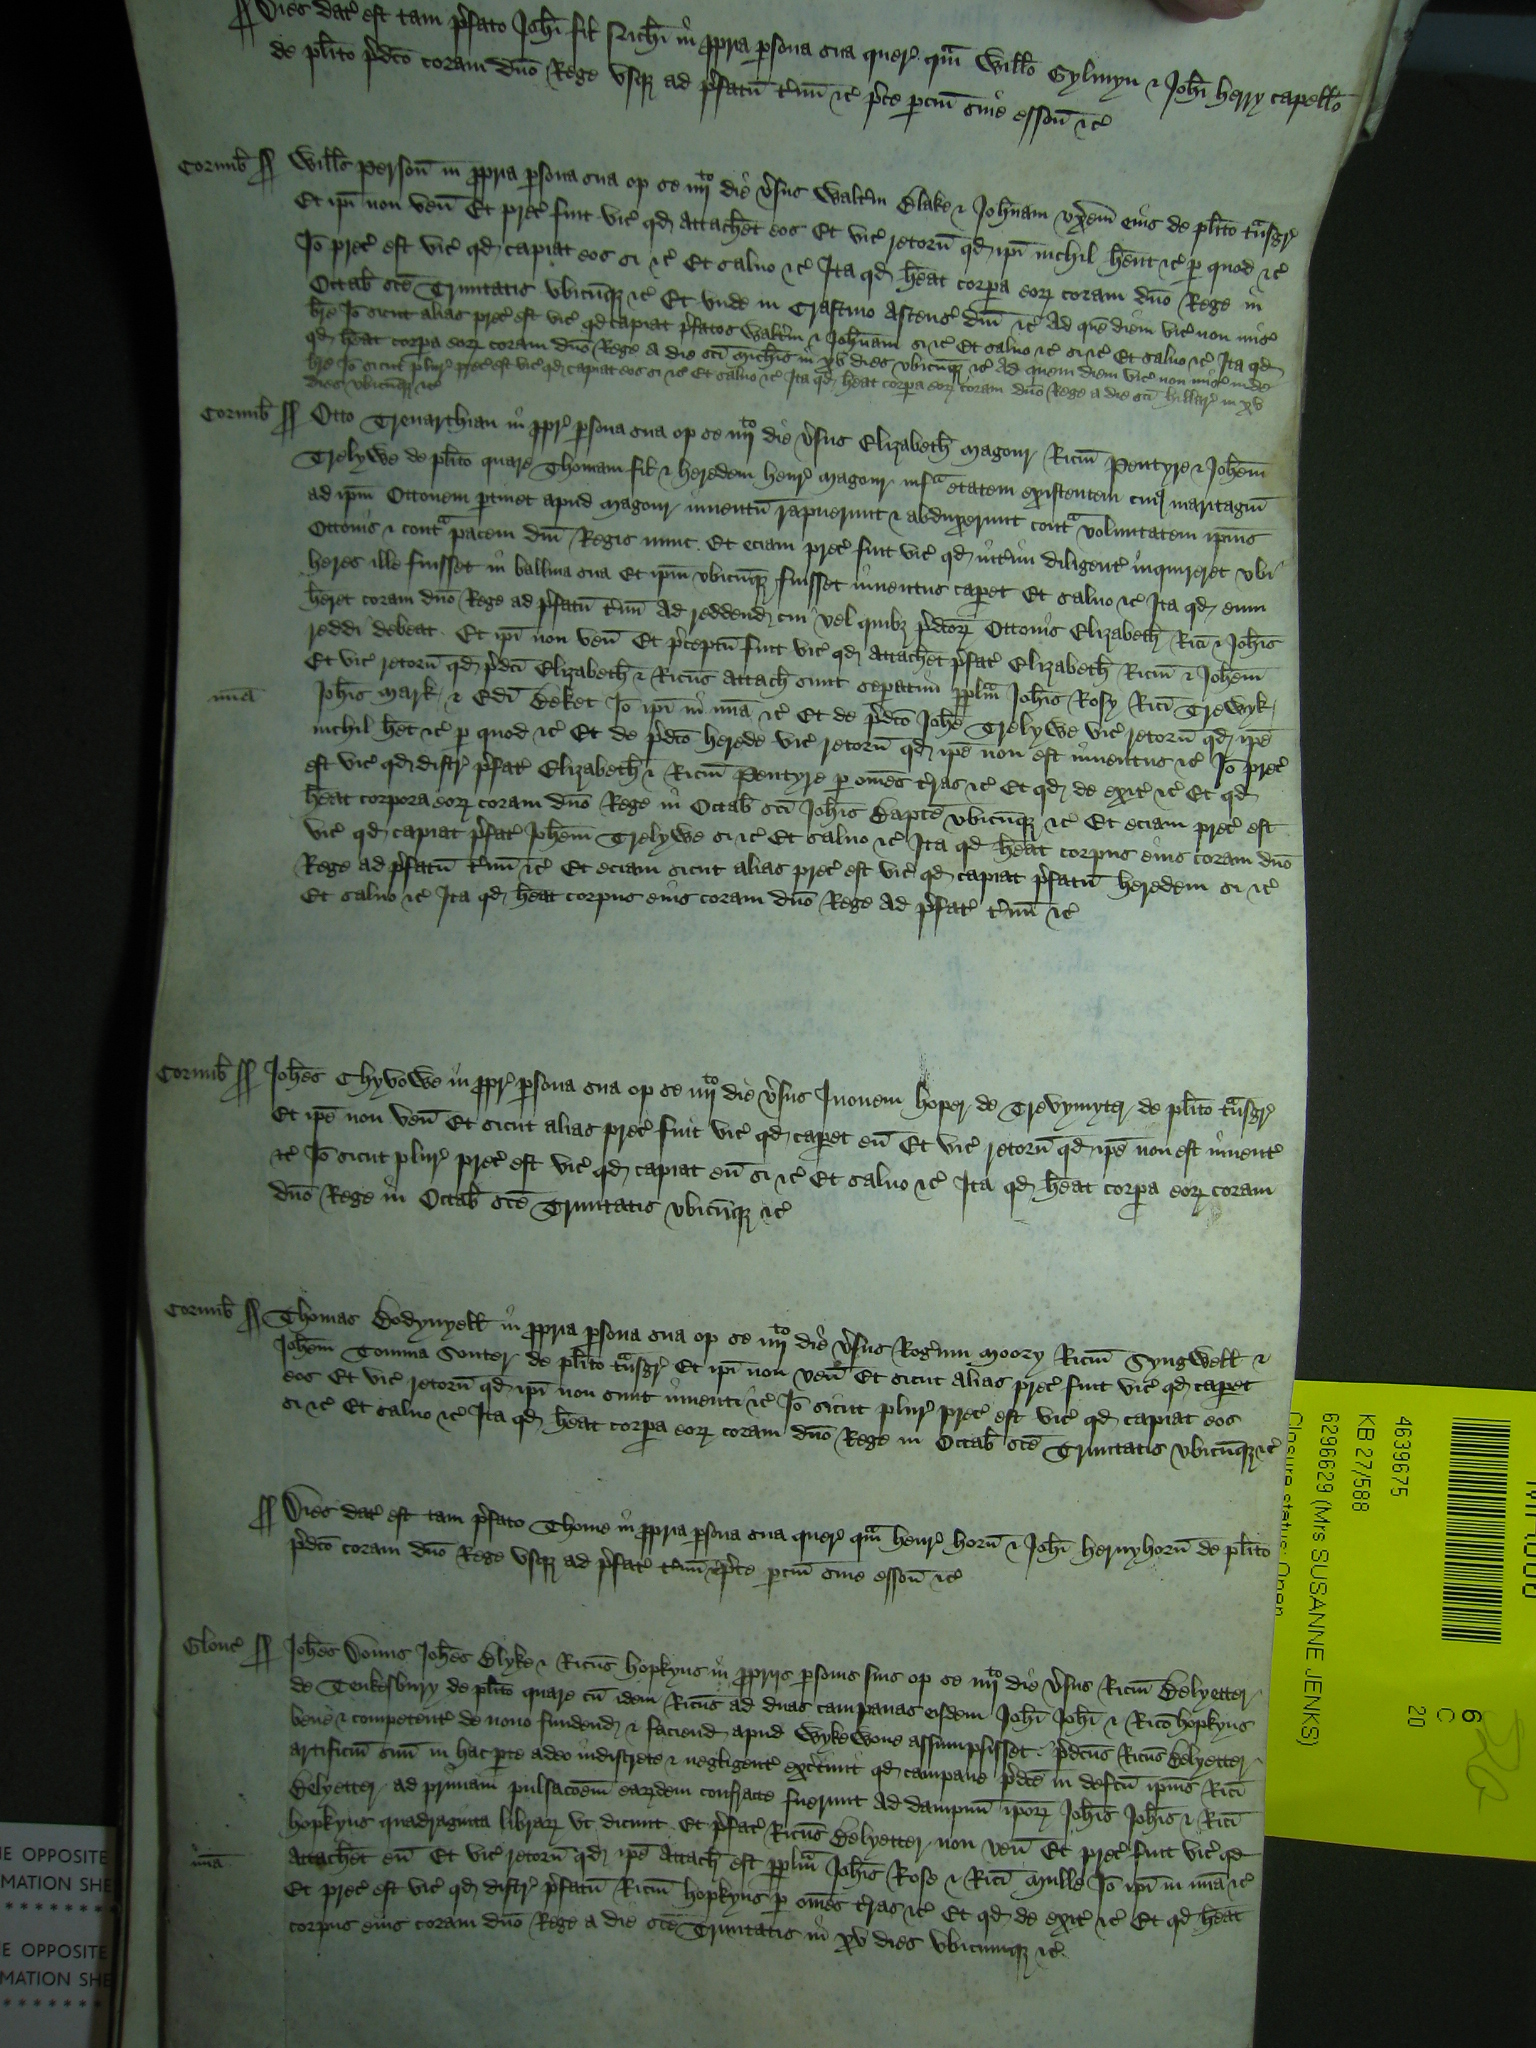 Dies dat' est tam p'fato Joh'i fil' Rich'i in ppria psona sua quer' qam Will'o Gylmyn & Joh'i Herry capell'o
de pl'ito p'dc'o coram d'no Rege vsq' ad p'fatu' t'm'u' &c' p'ce pcm' sine esson' &c'
Cornub' Will's Person' in ppria psona sua op se iiijto die v'sus Walt'm Blake & Joh'nam vx'em eius de pl'ito t'nsgr'
Et ip'i non ven' Et prec' fuit vic' qd' attach'et eos Et vic' retorn' qd' ip'i nichil h'ent &c' p quod &c'
Jo' prec' est vic' qd' capiat eos si &c' Et saluo &c' Ita qd' h'eat corpa eor' coram d'no Rege in
Octab' sc'e Trinitatis vbicu'q' &c' Et vnde in Crastino Ascens' d'ni &c' Ad que' diem vic' non mis'
br'e Jo' sicut alias prec' est vic' qd' capiat p'fatos Walt'm & Joh'nam si &c' Et saluo &c' si &c' Et saluo &c' Ita qd'
qd' h'eat corpa eor' coram d'no Rege A die sc'i Mich'is in xv dies vbicu'q' &c' Ad quem diem vic' non mis' inde
br'e Jo' sicut plur' prec' est vic' qd' capiat eos si &c' Et saluo &c' Ita qd' h'eat corpa eor' coram d'no Rege a die sc'i Hillar' in xv
dies vbicu'q' &c'
Cornub' Otto Trenarthian in ppr' psona sua op se iiijto die v'sus Elizabeth' Magour Ric'm Pentyre & Joh'em
Trelywe de pl'ito quare Thomam fil' & heredem Henr' Magour infra etatem existentem cui' maritagiu'
ad ip'm Ottonem ptinet apud Magour inuentu' rapuerunt & abduxerunt contra voluntatem ip'ius
Ottonis & contra pacem d'ni Regis nunc. Et eciam prec' fuit vic' qd' int'im diligent' inquireret vbi
heres ille fuisset in balliua sua Et ip'm vbicu'q' fuisset inuentus capet Et saluo &c' Ita qd' eum
h'eret coram d'no Rege ad p'fatu' t'm'u' Ad reddend' cui vel quib' p'dc'or' Ottonis Elizabeth' Ric'i & Joh'is
reddi debeat. Et ip'i non ven' Et p'ceptu' fuit vic' qd' attach'et p'fat' Elizabeth' Ric'm & Joh'em
Et vic' retorn' qd' p'dc'i Elizabeth' & Ric'us attach' sunt sepatim p pl'm Joh'is Rosy Ric'i Trewyk
mi'a Joh'is Mark & Ed'i Beket Jo' ip'i in mi'a &c' Et de p'dc'o Joh'e Trelywe vic' retorn' qd' ip'e
nichil h'et &c' p quod &c' Et de p'dc'o herede vic' retorn' qd' ip'e non est inuentus &c' Jo' prec'
est vic' qd' distr' p'fat' Elizabeth' & Ric'm Pentyre p om'es t'ras &c' Et qd' de exit' &c' Et qd'
h'eat corpora eor' coram d'no Rege in Octab' sc'i Joh'is Bapt'e vbicu'q' &c' Et eciam prec' est
vic' qd' capiat p'fat' Joh'em Trelywe si &c' Et saluo &c' Ita qd' h'eat corpus eius coram d'no
Rege ad p'fatu' t'm'u' &c' Et eciam sicut alias prec' est vic' qd' capiat p'fatu' heredem si &c'
Et saluo &c' Ita qd' h'eat corpus eius coram d'no Rege Ad p'fat' t'm'u' &c'
Cornub' Joh'es Chyvowe in ppr' psona sua op se iiijto die v'sus Inonem Hoper de Trevymyter de pl'ito t'nsgr'
Et ip'e non ven' Et sicut alias prec' fuit vic' qd' capet eu' Et vic' retorn' qd' ip'e non est inuent'
&c' Jo' sicut plur' prec' est vic' qd' capiat eu' si &c' Et saluo &c' Ita qd' h'eat corpa eor' coram
d'no Rege in Octab' sc'e Trinitatis vbicu'q' &c'
Cornub' Thomas Bodynyell' in ppria psona sua op se iiijto die v'sus Rog'um Moory Ric'm Syngwell' &
Joh'em Tomma Souter de pl'ito t'nsgr' Et ip'i non ven' Et sicut alias prec' fuit vic' qd' capet
eos Et vic' retorn' qd' ip'i non sunt inuenti &c' Jo' sicut plur' prec' est vic' qd' capiat eos
si &c' Et saluo &c' Ita qd' h'eat corpa eor' coram d'no Rege in Octab' sc'e Trinitatis vbicu'q' &c'
Dies dat' est tam p'fato Thome in ppria psona sua quer' qam Henr' Horn' & Joh'i Hernyhorn' de pl'ito
p'dc'o coram d'no Rege vsq' ad p'fat' t'm'u' p'ce pcm' sine esson' &c'
Glouc' Joh'es Donns Joh'es Blyke & Ric'us Hopkyns in ppriis psonis suis op se iiijto die v'sus Ric'm Belyetter
de Teukesbury de pl'ito quare cu' idem Ric'us ad duas campanas eisdem Joh'i Joh'i & Ric'o Hopkyns
bene & competent' de nouo fundend' & faciend' apud Wykewone assumpsisset. p'dc'us Ric'us Belyetter
artificiu' suu' in hac p'te adeo indiscrete & negligent' ex'cuit qd' campane p'dc'e in defc'u ip'ius Ric'i
Belyetter ad primam pulsac'oem eardem confracte fuerunt Ad dampnu' ip'or' Joh'is Joh'is & Ric'i
Hopkyns quadraginta librar' vt dicunt. Et p'fat' Ric'us Belyetter non ven' Et prec' fuit vic' qd'
mi'a attach'et eu' Et vic' retorn' qd' ip'e attach' est p pl'm Joh'is Rose & Ric'i Mulle Jo' ip'i in mi'a &c'
Et prec' est vic' qd' distr' p'fatu' Ric'm Hopkyns p om'es t'ras &c' Et qd' de exit' &c' Et qd' h'eat
corpus eius coram d'no Rege a die sc'e Trinitatis in xv dies vbicumq' &c'
4639675
KB 27/588
6296629 (Mrs SUSANNE JENKS)
Closure status: Open
6
C
20
E OPPOSITE
MATION SHE
* * * * * * *
E OPPOSITE
MATION SHE
* * * * * * *